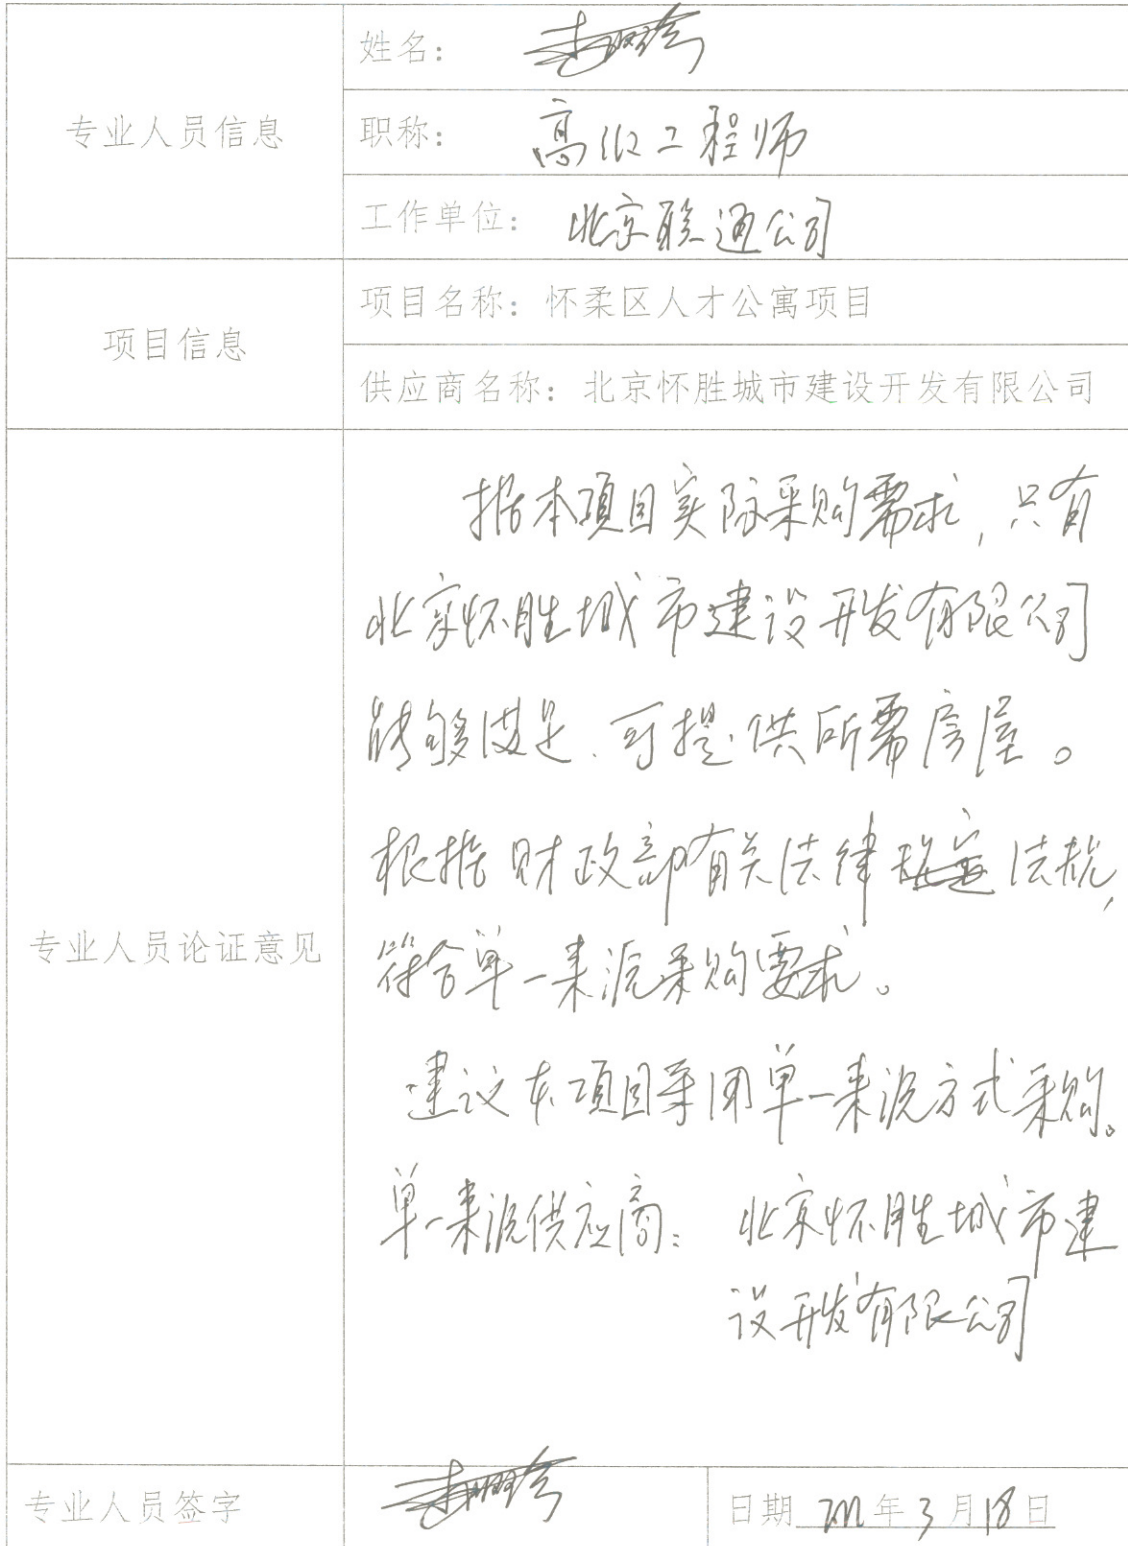 专业人员信息
姓名：
职称： 高级工程师
工作单位： 北京联通公司
项目信息
项目名称：怀柔区人才公寓项目
供应商名称：北京怀胜城市建设开发有限公司
专业人员论证意见
据本项目实际采购需求，只有
北京怀胜城市建设开发有限公司
能够满足、可提供所需房屋。
根据财政部有关法律法规，
符合单一来源采购要求。
建议本项目采用单一来源方式采购。
单一来源供应商： 北京怀胜城市建
设开发有限公司
专业人员签字
日期 年3月18日